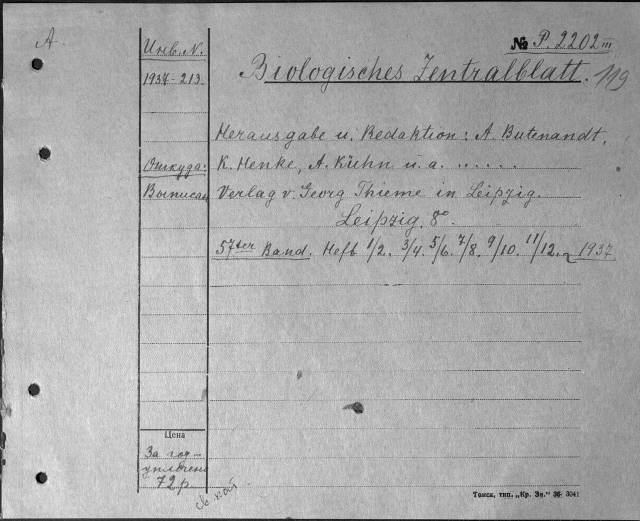 А.
Инв. N.
1937-213.
№ P. 2202 III
119
Biologisches Zentralblatt.
Herausgabe u. Redaktion: A. Butenandt,
Откуда:
K. Henke, A. Kühn u. a. ......
Выписан
Verlag v. Georg Thieme in Leipzig.
Leipzig, 8°.
57ter Band. Heft 1/2. 3/4. 5/6. 7/8. 9/10. 11/12. 1937
Цена
За год -
уплочено
72 р.
Томск, тип. „Кр. Зн." 36- 3041